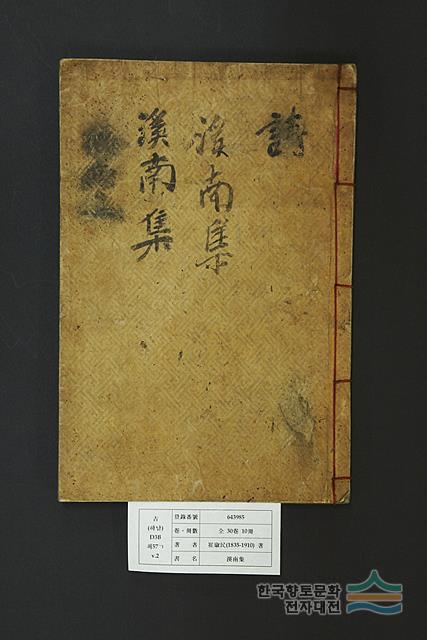 詩
溪南集
溪南集
古
(하남)
D3B
v.2
登錄番號 643985
卷・冊數 全 30卷 10冊
著 者 崔肅民(1835-1910) 著
書 名 溪南集
한국향토문화
전자대전